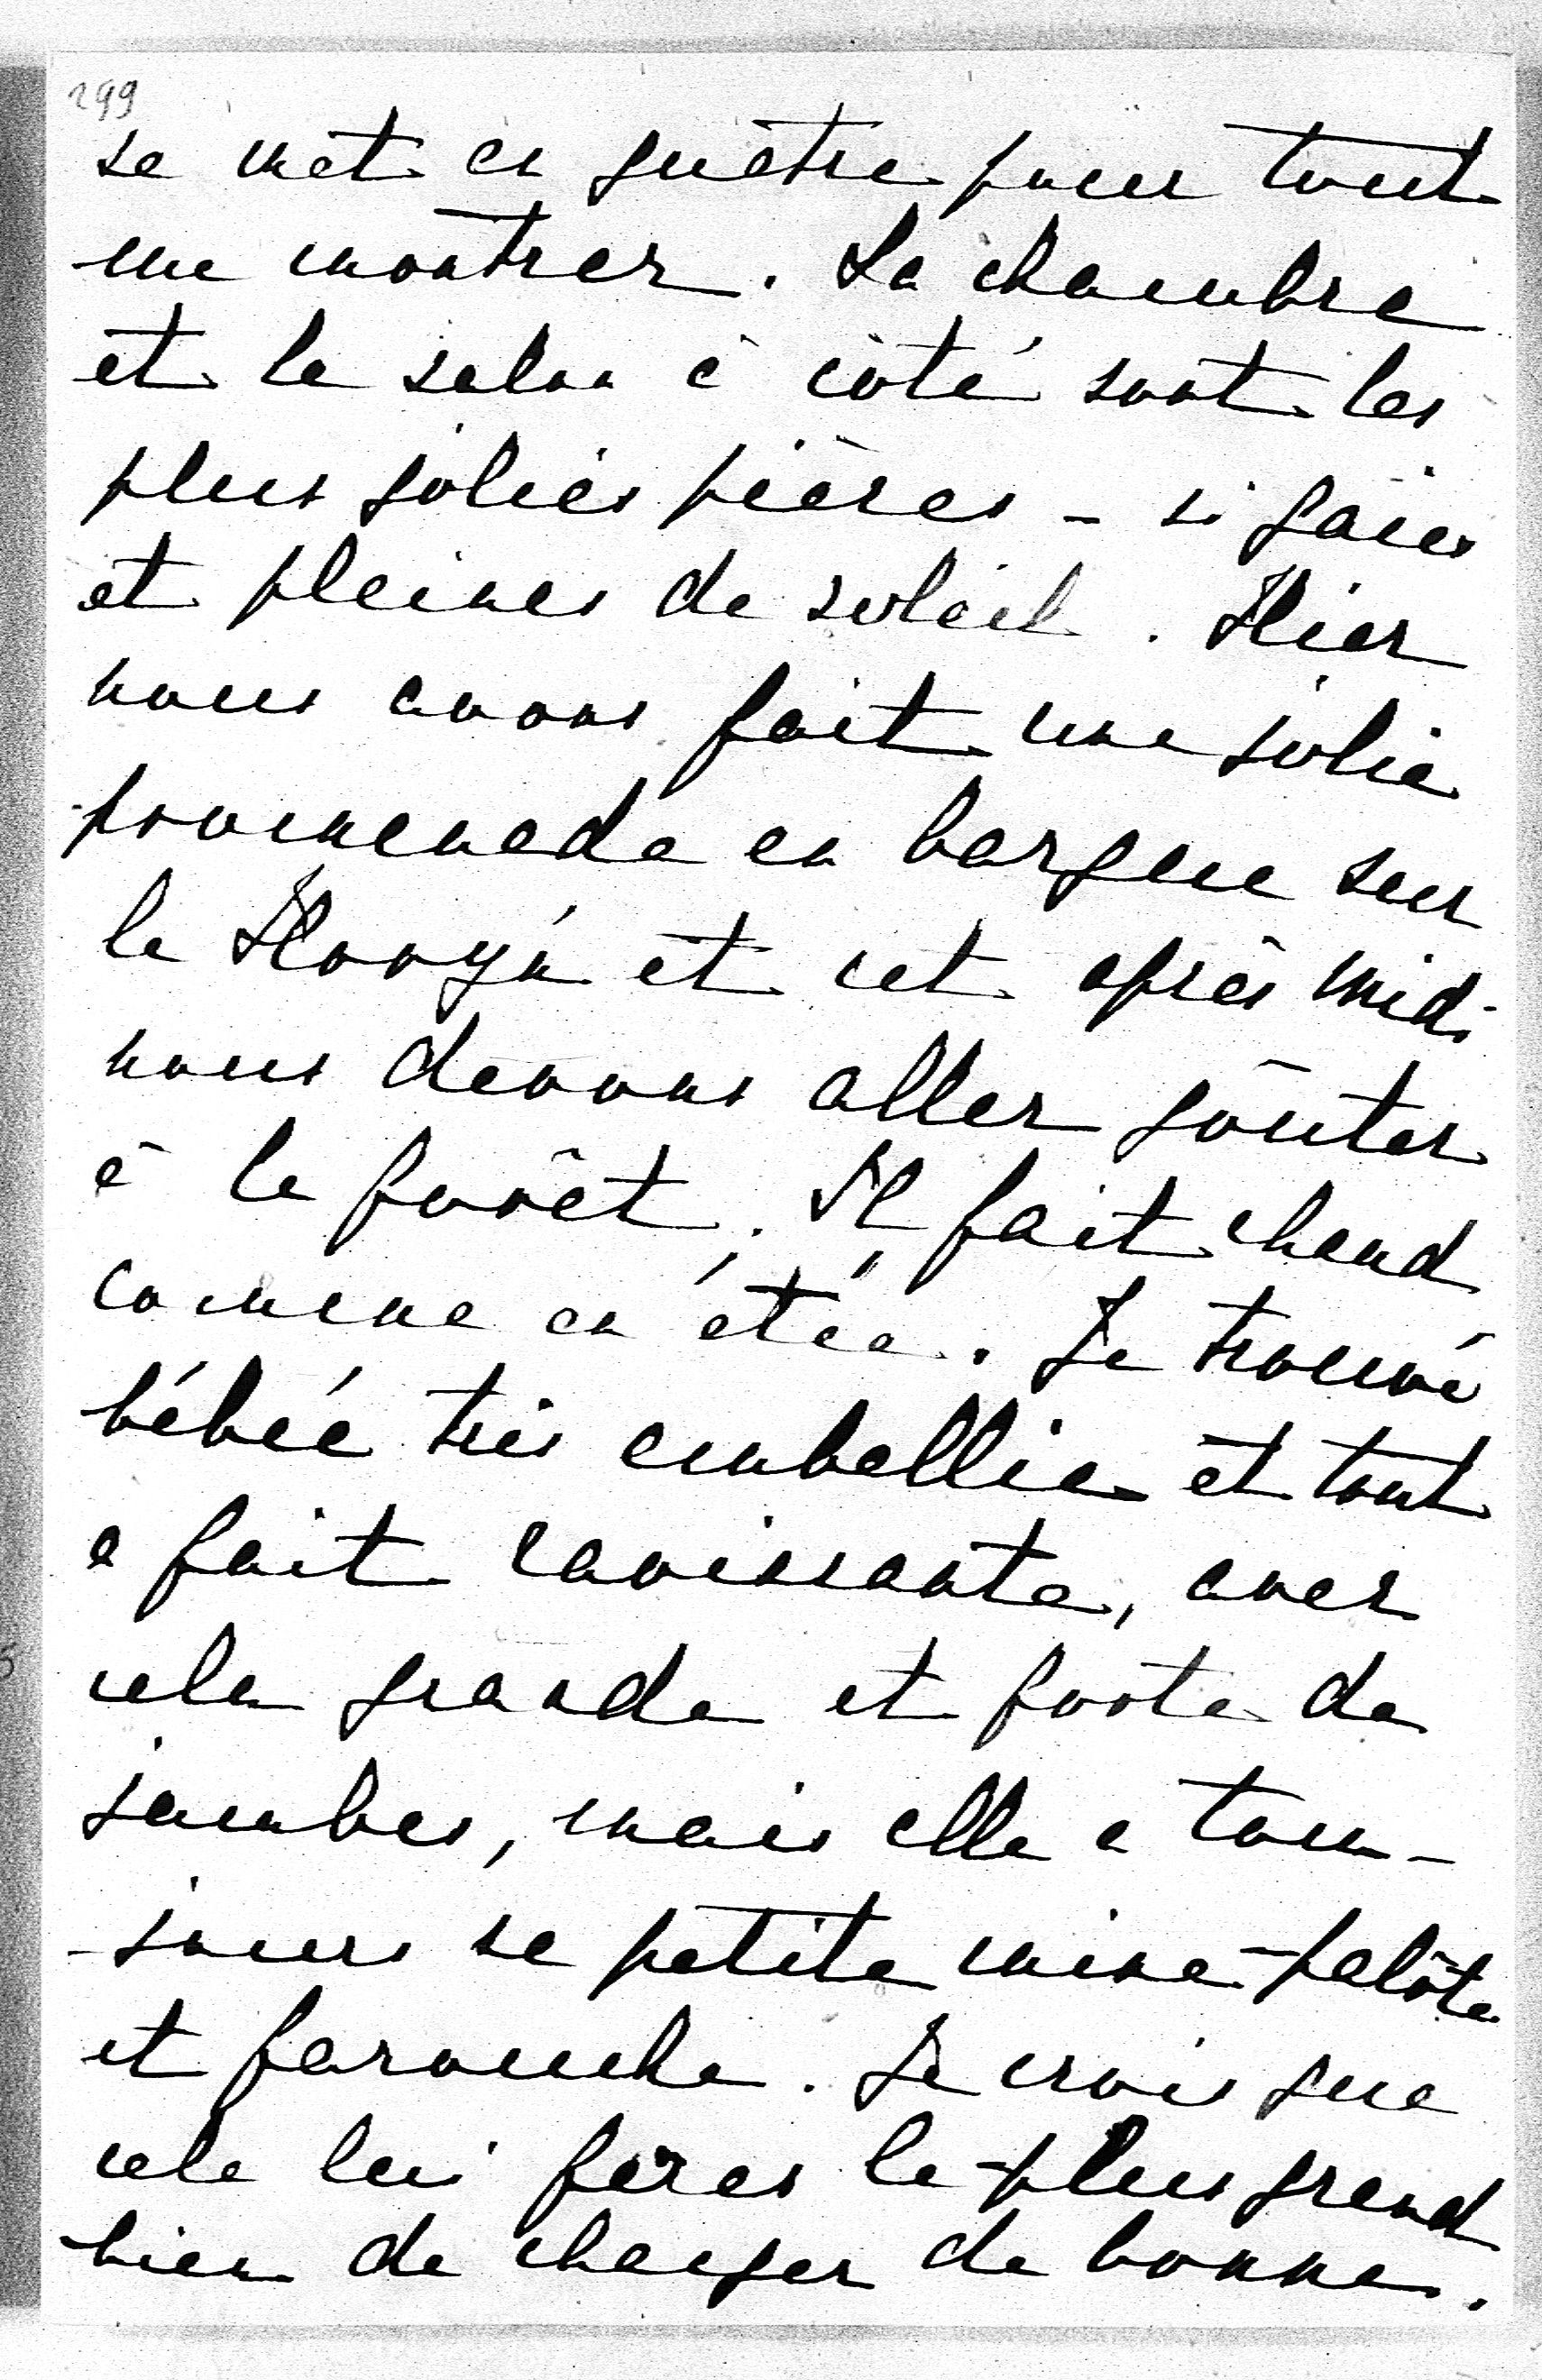 299
se met en quatre pour tout
me montrer. Sa chambre
et le salon à côté sont les
plus jolies pièces - si gaies
et pleines de soleil. Hier
nous avons fait une jolie
promenade en barque sur
le et cet après midi
nous devons aller goûter
à la forêt. Il fait chaud
comme en étée. Je trouve
bébée très embellie et tout
a fait ravissante, avec
cela grande et forte de
jambes, mais elle a tou-
-jours sa petite mine palôte
et farouche. Je crois que
cela lui feras le plus grand
bien de changer de bonne.